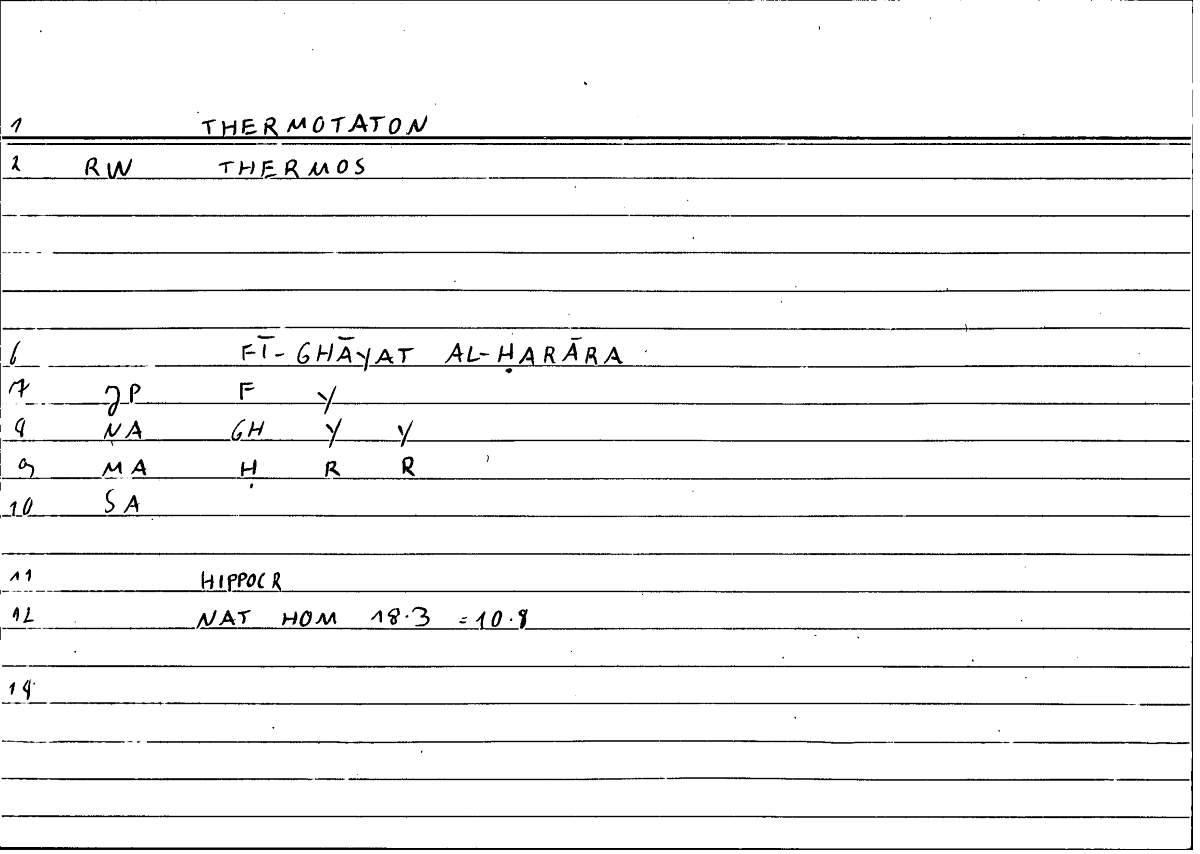 1 THERMOTATON
2 RW THERMOS
6 FĪ-GHĀYAT AL-ḤARĀRA
7 JP F Y
8 NA GH Y Y
9 MA Ḥ R R
10 SA
11 HIPPOCR
12 NAT HOM 18.3 = 10.8
14